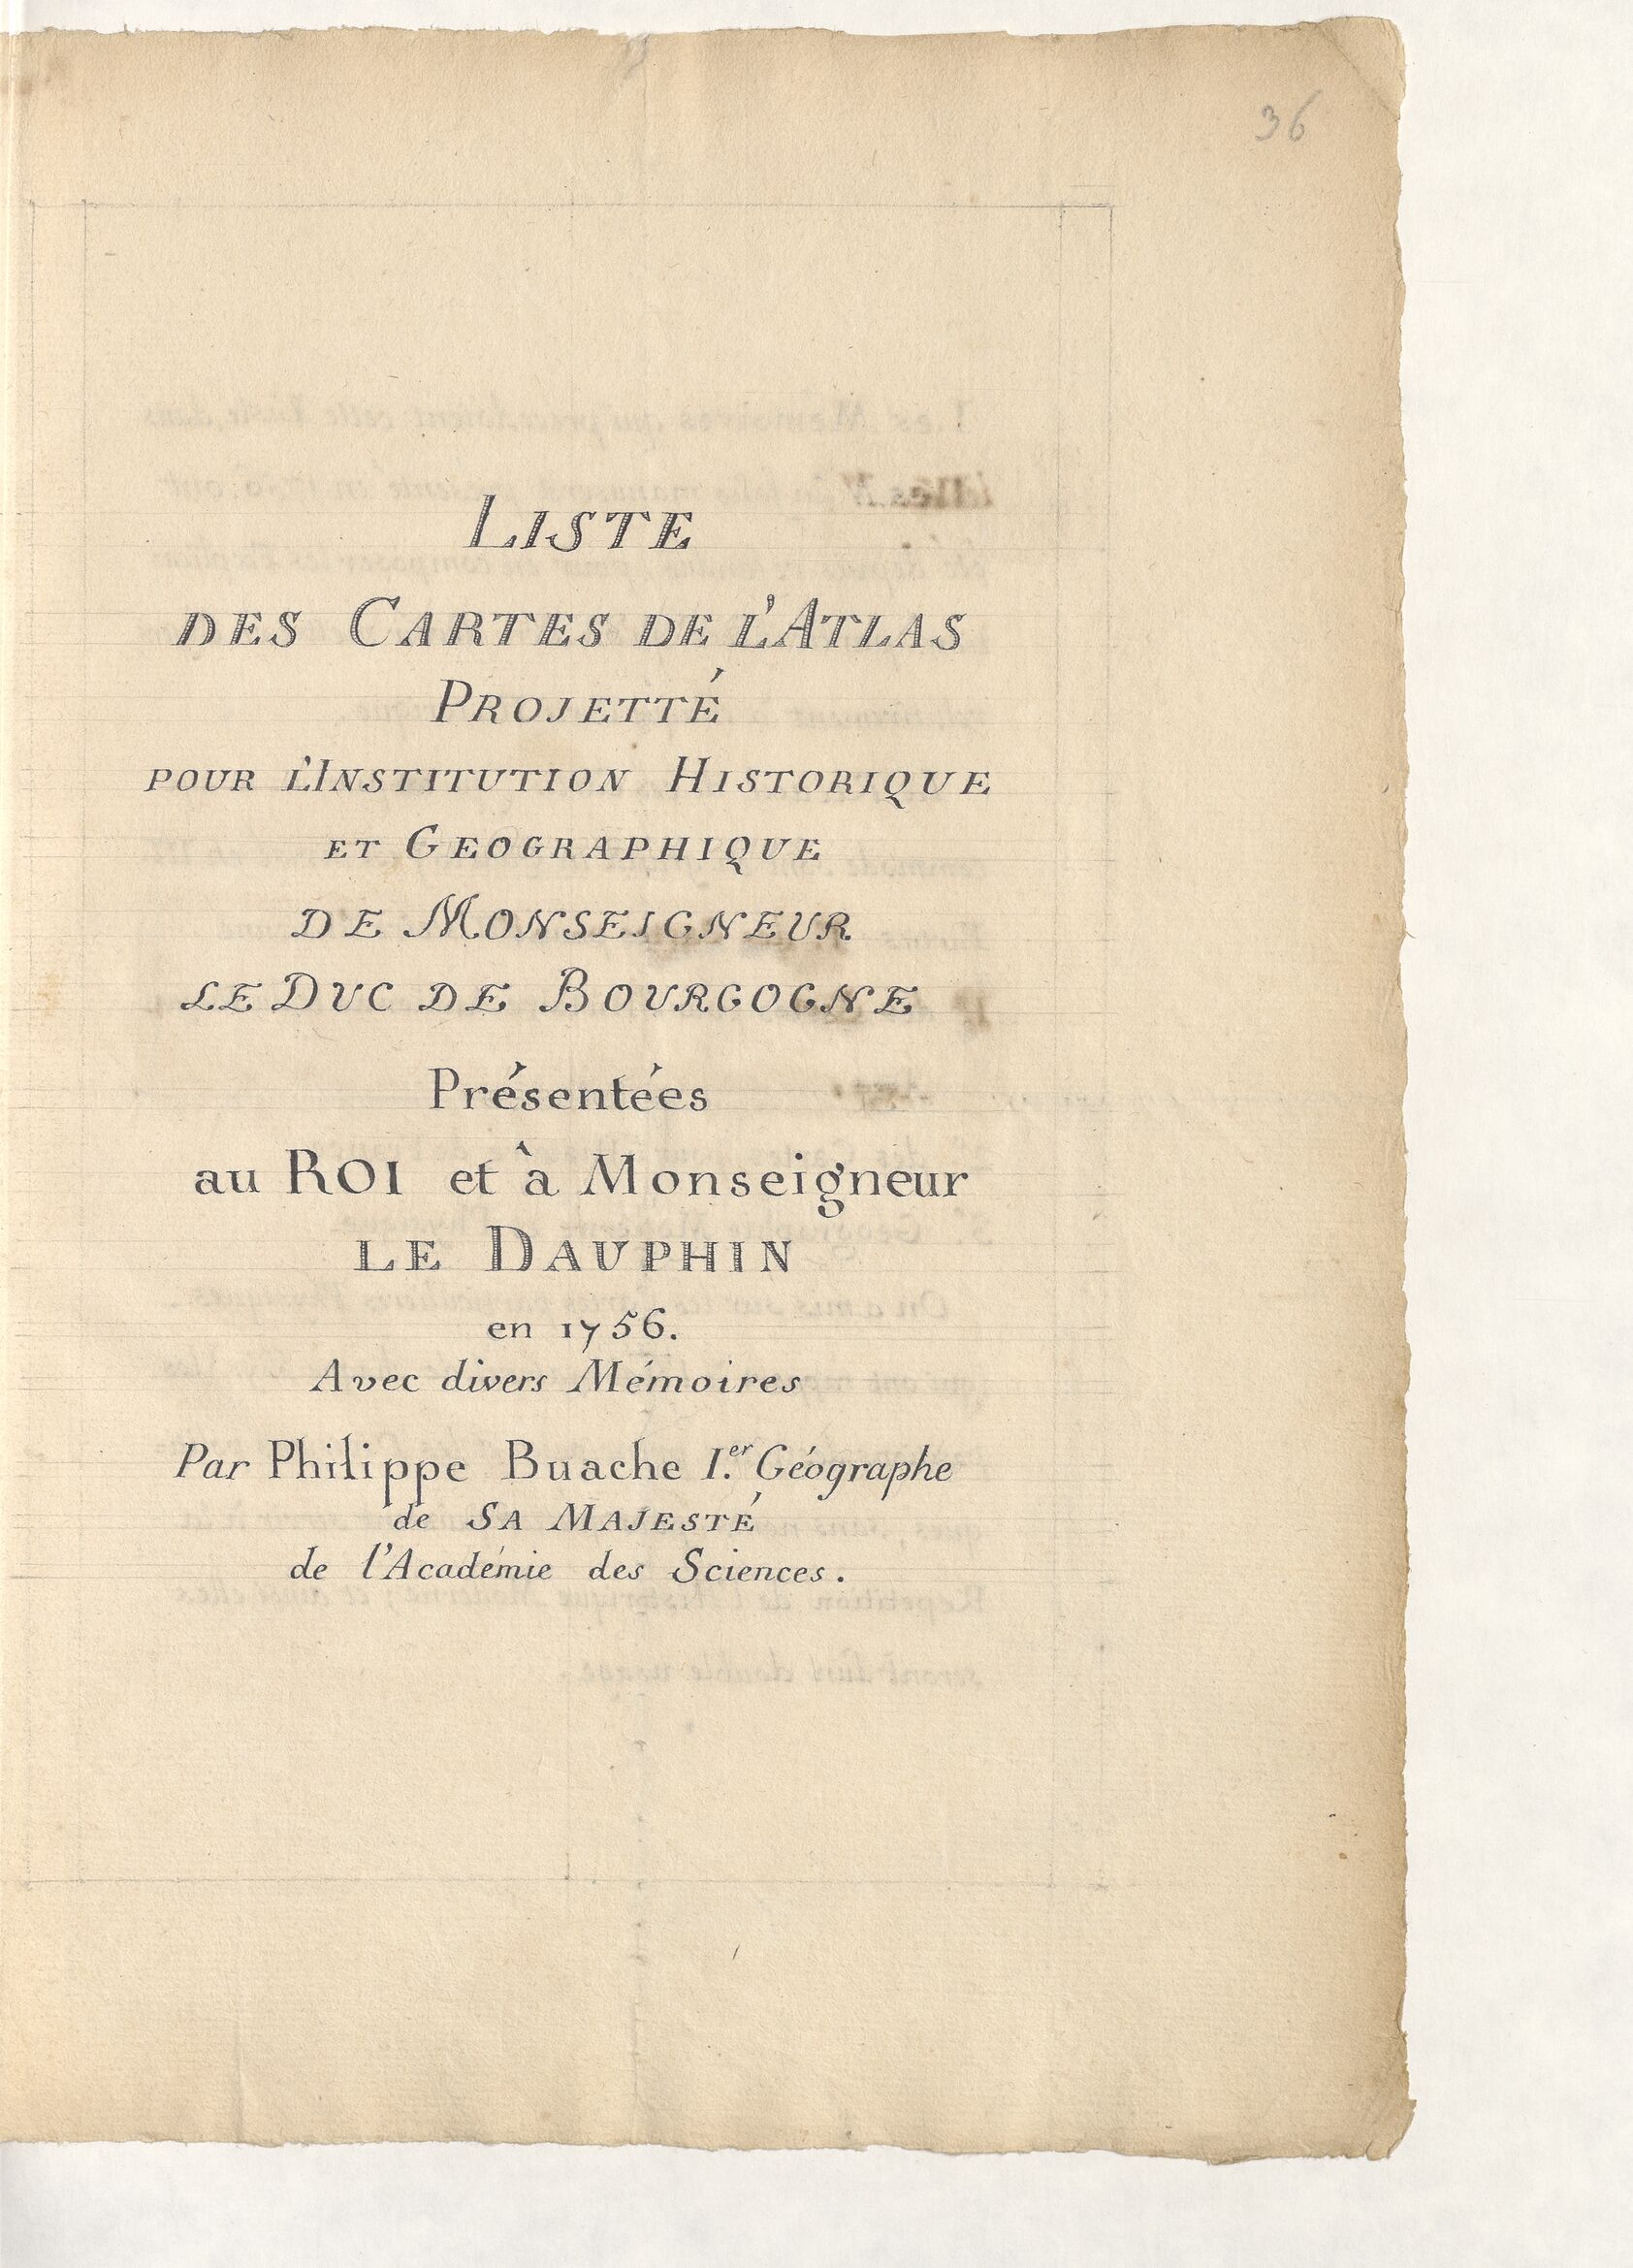 36
LISTE
DES CARTES DE L'ATLAS
PROJETTÉ
POUR L'INSTITUTION HISTORIQUE
ET GEOGRAPHIQUE
DE MONSEIGNEUR
LE DUC DE BOURGOGNE
Présentées
au ROI et à Monseigneur
LE DAUPHIN
en 1756.
Avec divers Mémoires
Par Philippe Buache I.er Géographe
de SA MAJESTÉ
de l'Académie des Sciences.